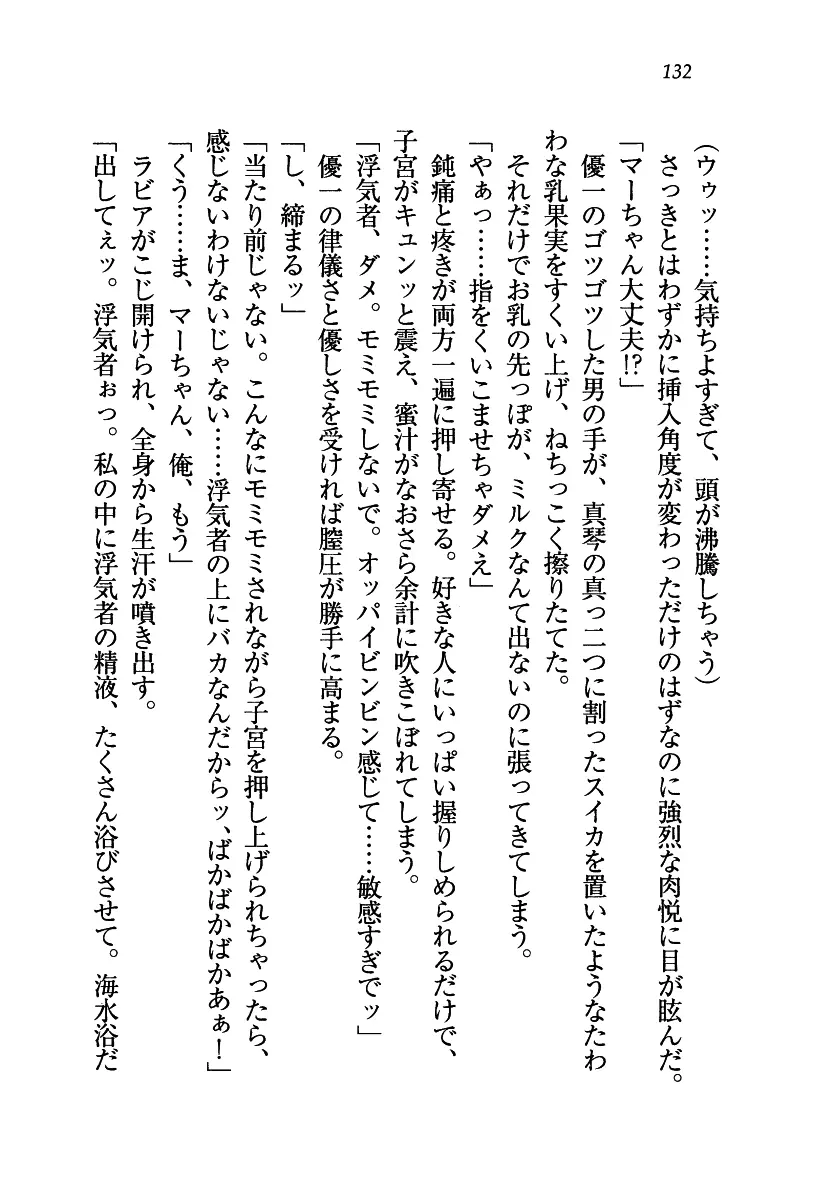 132
(ウゥッ……気持ちよすぎて、頭が沸騰しちゃう)
さっきとはわずかに挿入角度が変わっただけのはずなのに強烈な肉悦に目が眩んだ。
「マーちゃん大丈夫!?」
優一のゴツゴツした男の手が、真琴の真っ二つに割ったスイカを置いたようなたわ
わな乳果実をすくい上げ、ねちっこく擦りたてた。
それだけでお乳の先っぽが、ミルクなんて出ないのに張ってきてしまう。
「やぁっ……指をくいこませちゃダメぇ」
鈍痛と疼きが両方一遍に押し寄せる。好きな人にいっぱい握りしめられるだけで、
子宮がキュンッと震え、蜜汁がなおさら余計に吹きこぼれてしまう。
「浮気者、ダメ。モミモミしないで。オッパイビンビン感じて……敏感すぎでッ」
優一の律儀さと優しさを受ければ膣圧が勝手に高まる。
「し、締まるッ」
「当たり前じゃない。こんなにモミモミされながら子宮を押し上げられちゃったら、
感じないわけないじゃない……浮気者の上にバカなんだからッ、ばかばかばかあぁ！」
「くう……ま、マーちゃん、俺、もう」
ラビアがこじ開けられ、全身から生汗が噴き出す。
「出してぇッ。浮気者ぉっ。私の中に浮気者の精液、たくさん浴びさせて。海水浴だ